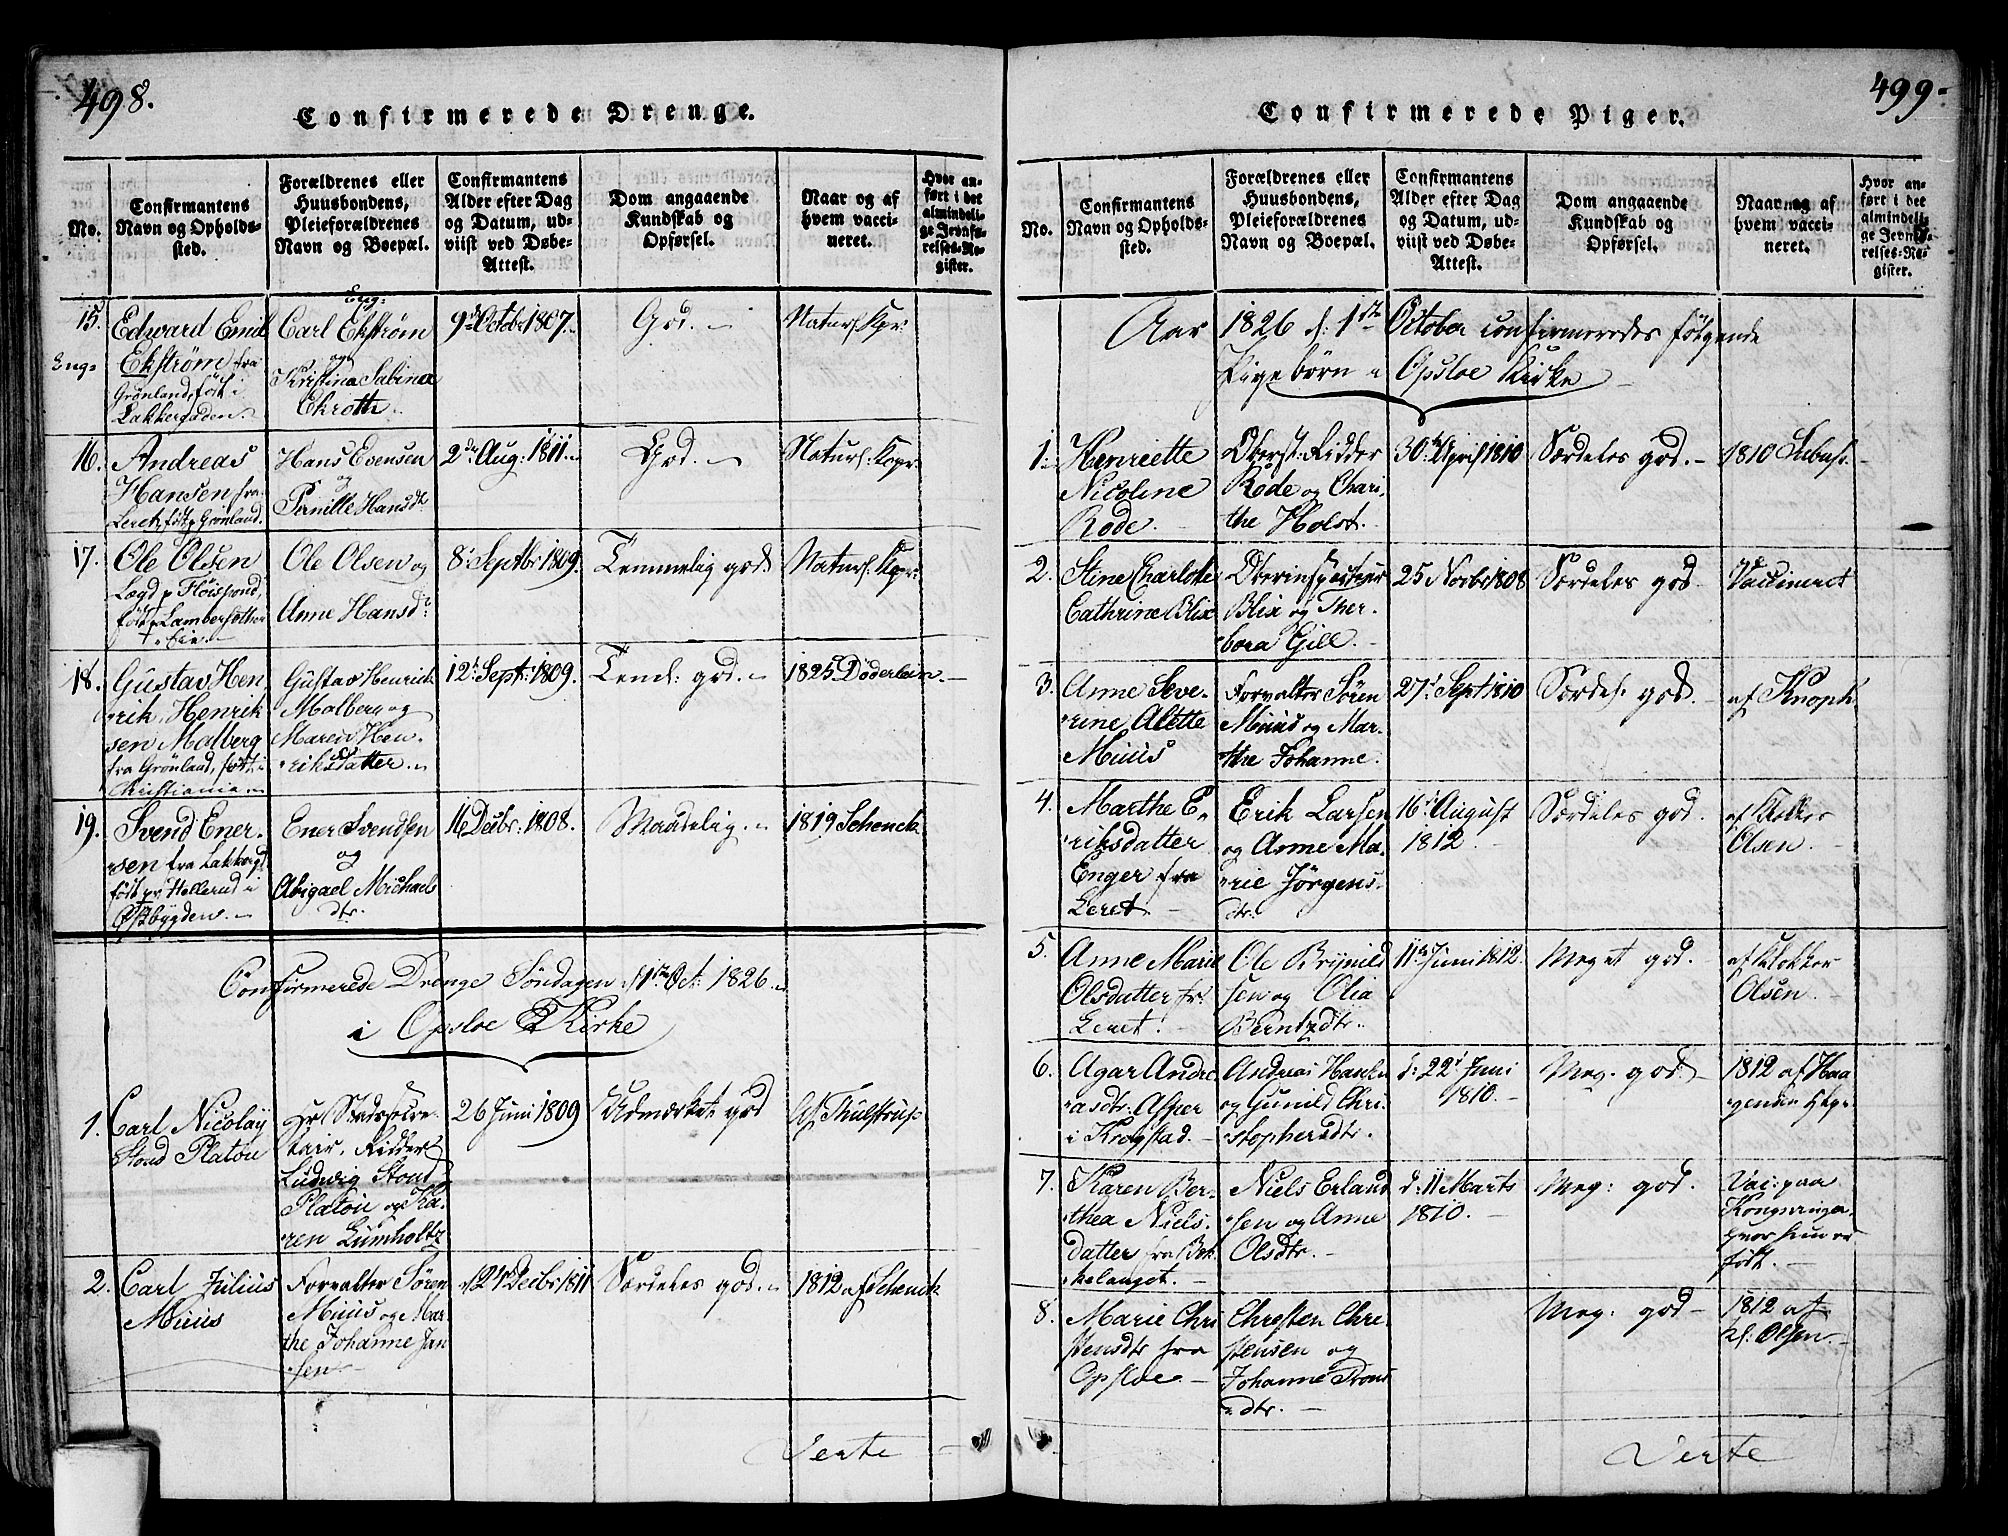 498.
Confirmerede Drenge.
No.
Confirmantens
Navn og Opholds-
sted.
Forældrenes eller
Huusbondens,
Pleieforældrenes
Navn og Boepæl.
Confirmantens
Alder efter Dag
og Datum, ud-
viist ved Døbe-
Attest.
Dom angaaende
Kundskab og
Opførsel.
Naar og af
hvem vacci-
neret.
Hvor an-
ført i det
almindeli-
ge Jevnfø-
relses-Re-
gister.
15.
Eng=
Edward Emil
Ekström fra
Grönland, föst i
Lakkergaden.
Eng:
Carl Ekström
og
Kristina Sabina
Ekroth.
9de Octobr 1807.
God.
Naturl: Kpr:
16.
Andreas
Hansen fra
Leret, föst p Grönland.
Hans Evensen
og
Pernille Hansdr
2den Aug: 1811.
God.
Naturl: Kopr:
17.
Ole Olsen
Lægd p
föst
Ole Olsen og
Anne Hansdr
8 Septbr 1809.
Temmelig god
Naturl: Kpr:
18.
Gustav Hen
rik Henrik
sen Malberg
fra Grönland, föst i
Christiania.
Gustav Henrick
Malberg og
Maren Hen
riksdatter.
12t Sept: 1809.
Teml: god.
1825 Döderlein.
19.
Svend Ener
sen fra Lakkergd
föst pr Hellerud i
Østbygden.
Ener Svendsen
og
Abigael Michaels
dtr.
16 Decbr: 1808.
Maadelig.
1819 Schenck.
Confirmerede Drenge Söndagen d 1ste Oct: 1826.
i Opsloe Kirke
1.
Carl Nicolay
Stoud Platou
Hr Stadssecre
tair, Ridder
Ludwig Stoud
Platou og Ka
ren Lumholtz
26 Juni 1809
Udmærket god
Af Thulstrup
2.
Carl Julius
Muus
Forvalter Sören
Muus og Mar
the Johanne Jan
sen.
Decbr 1811
Særdeles god.
1812 af Schenck
Verte
499.
Confirmerede Piger.
No.
Confirmantens
Navn og Opholds-
sted.
Forældrenes eller
Huusbondens,
Pleieforældrenes
Navn og Boepæl.
Confirmantens
Alder efter Dag
og Datum, ud-
viist ved Døbe-
Attest.
Dom angaaende
Kundskab og
Opførsel.
Naar og af
hvem vacci-
neret.
Hvor an-
ført i det
almindeli-
ge Jevnfø-
relses-Re-
gister.
Aar 1826 d: 1ste October confirmeredes følgende
Pigebörn i Opsloe Kirke
1.
Henriette
Nicoline
Rode.
Oberst: Ridder
Rode og Chari
the Holst.
30te April 1810
Særdeles god.
1810
2.
Stine Charlotte
Cathrine Blix
Oberinspecteur
Blix og Ther
bora Gill.
25 Novbr 1808
Særdeles god.
Vaccineret
3.
Anne Seve
rine Alette
Muus
Forvalter Sören
Muus og Mar
the Johanne.
27t Sept 1810
Særdel: god.
af Knoph
4.
Marthe E
riksdatter
Enger fra
Leret.
Erik Larsen
og Anne Ma
rie Jörgens
dtr.
16t August
1812.
Særdeles god.
af Klokker
Olsen.
5.
Anne Marie
Olsdatter fr
Leret.
Ole Brynild
sen og Olia
Berntzdtr.
11te Juni 1812.
Meget god.
af Klokker
Olsen.
6.
Agar Andre
asdtr: Asper
i Krogstad.
Andreas Hansen
og Gunild Chri
stophersdtr.
d: 22t Juni
1810.
Meg. god.
1812 af Haa
gensen Hegr.
7.
Karen Ber
thea Niels
datter fra Bek
kelanget.
Niels Erland
sen og Anne
Olsdtr.
d: 11 Marts
1810.
Meg: god.
Vac: paa
Kongsvinger,
hvor hun er
födt.
8.
Marie Chri
stensdtr fra
Opsloe.
Chresten Chre
stensen og
Johanne Trons
dtr.
Meg: god
1812 af
Kl: Olsen.
Verte